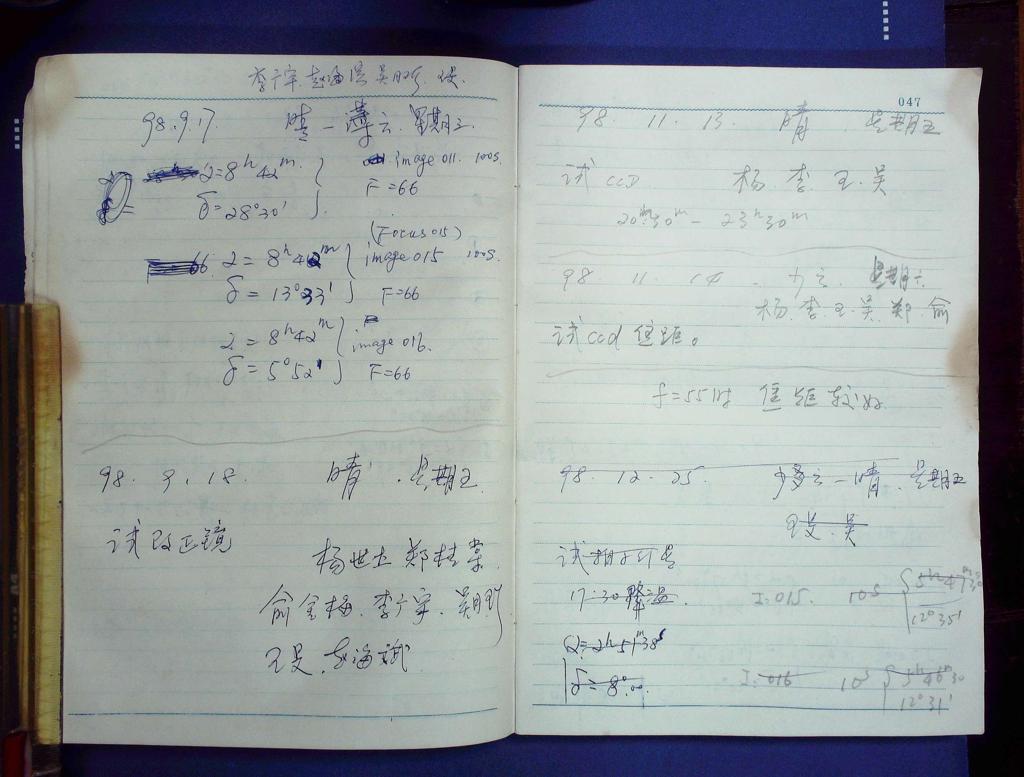 李广宇 赵海 吴月珍
98.9.17 晴一薄云 星期三
α=8h42m. image 011. 100s.
δ=28°30' F=66
(Focus 015)
α=8h42m image 015 100s.
δ=13°33' F=66
α=8h42m image 016.
δ=5°52' F=66
98. 9. 18. 晴 星期五
试改正镜
杨世杰 郑桂棠
俞金梅 李广宇 吴月珍
赵海斌
047
98 11. 13 晴 星期五
试 CCD 杨 李 王 吴
20h30m - 23h30m
98 11. 14 少云 星期六
杨 李 王 吴 郑 俞
试ccd 焦距。
f=55时 焦距较好
98. 12. 25. 少云一晴 星期五
吴
17:30 I:015. 10s 5h47m30
12°35'
α=2h51m38s
δ=8°.00. I:016 10s 5h46m30
12°31'